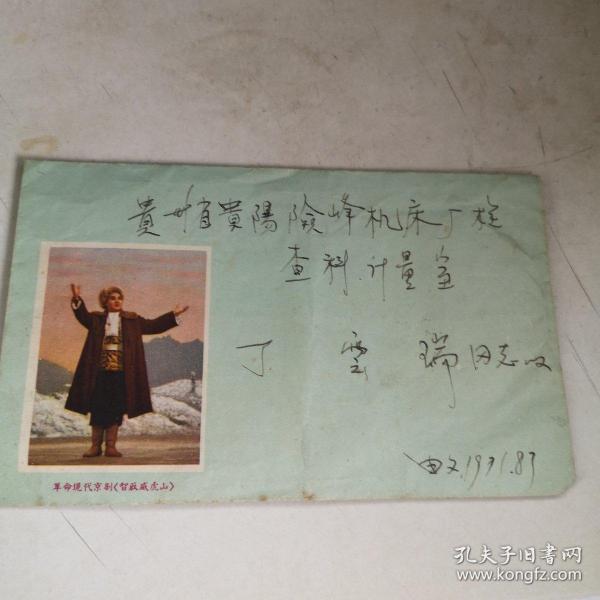 貴州省貴陽險峰机床厂检
查科.计量室
丁 雲 瑞同志收
1971.8.
革命现代京剧《智取威虎山》
孔夫子旧书网
www.kongfz.com